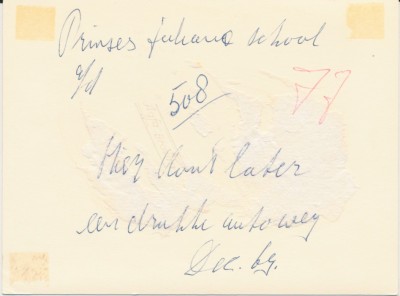 Prinses Juliana school
a/d
508
77
Hier komt later
een drukke autoweg
Dec. 69.